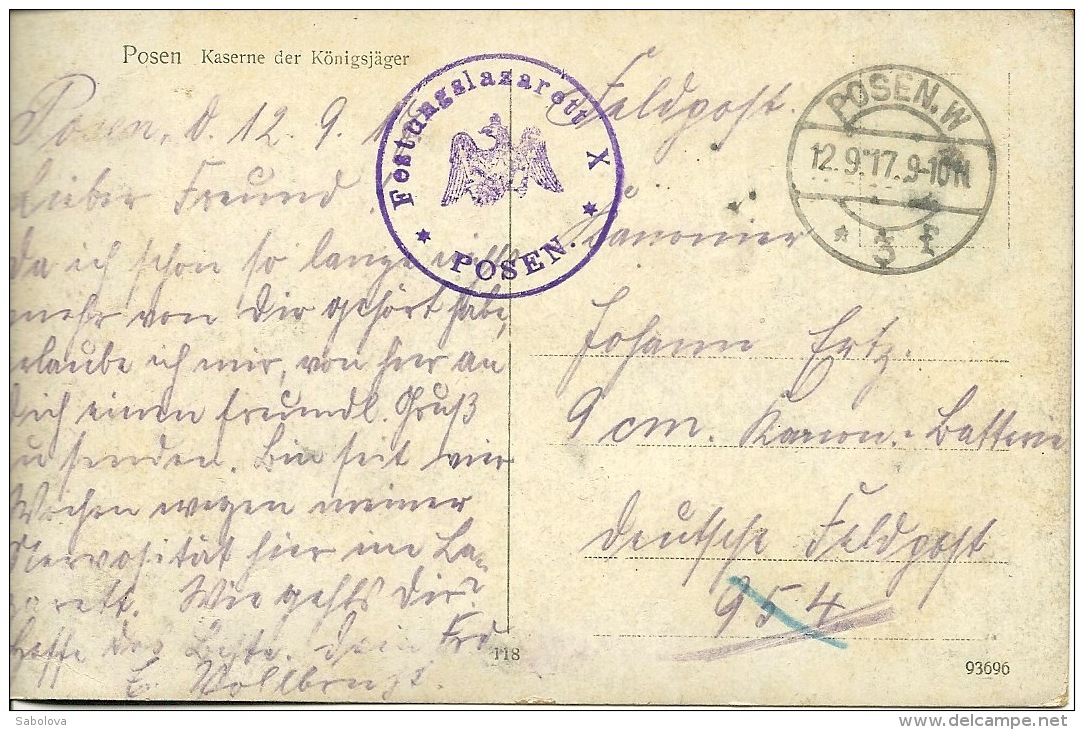 Posen Kaserne der Königsjäger
Festungslazarett X
POSEN.
POSEN. W
12.9.17. 9-10 N
* 3 f
Posen, d. 12. 9. 1
Lieber Freund.
Da ich schon so lange nichts
mehr von Dir gehört habe,
erlaube ich mir, von hier an
Dich einen freundl. Gruß
zu senden. Bin seit vier
Wochen wegen meiner
Nervosität hier im La-
zarett. Wie gehts Dir?
Hoffe das Beste. Dein Frd.
Feldpost.
Kanonier
Johann Ertz.
9 cm. Kanon.-Batterie
Deutsche Feldpost
954
118
93696
Sabolova
delcampe.net